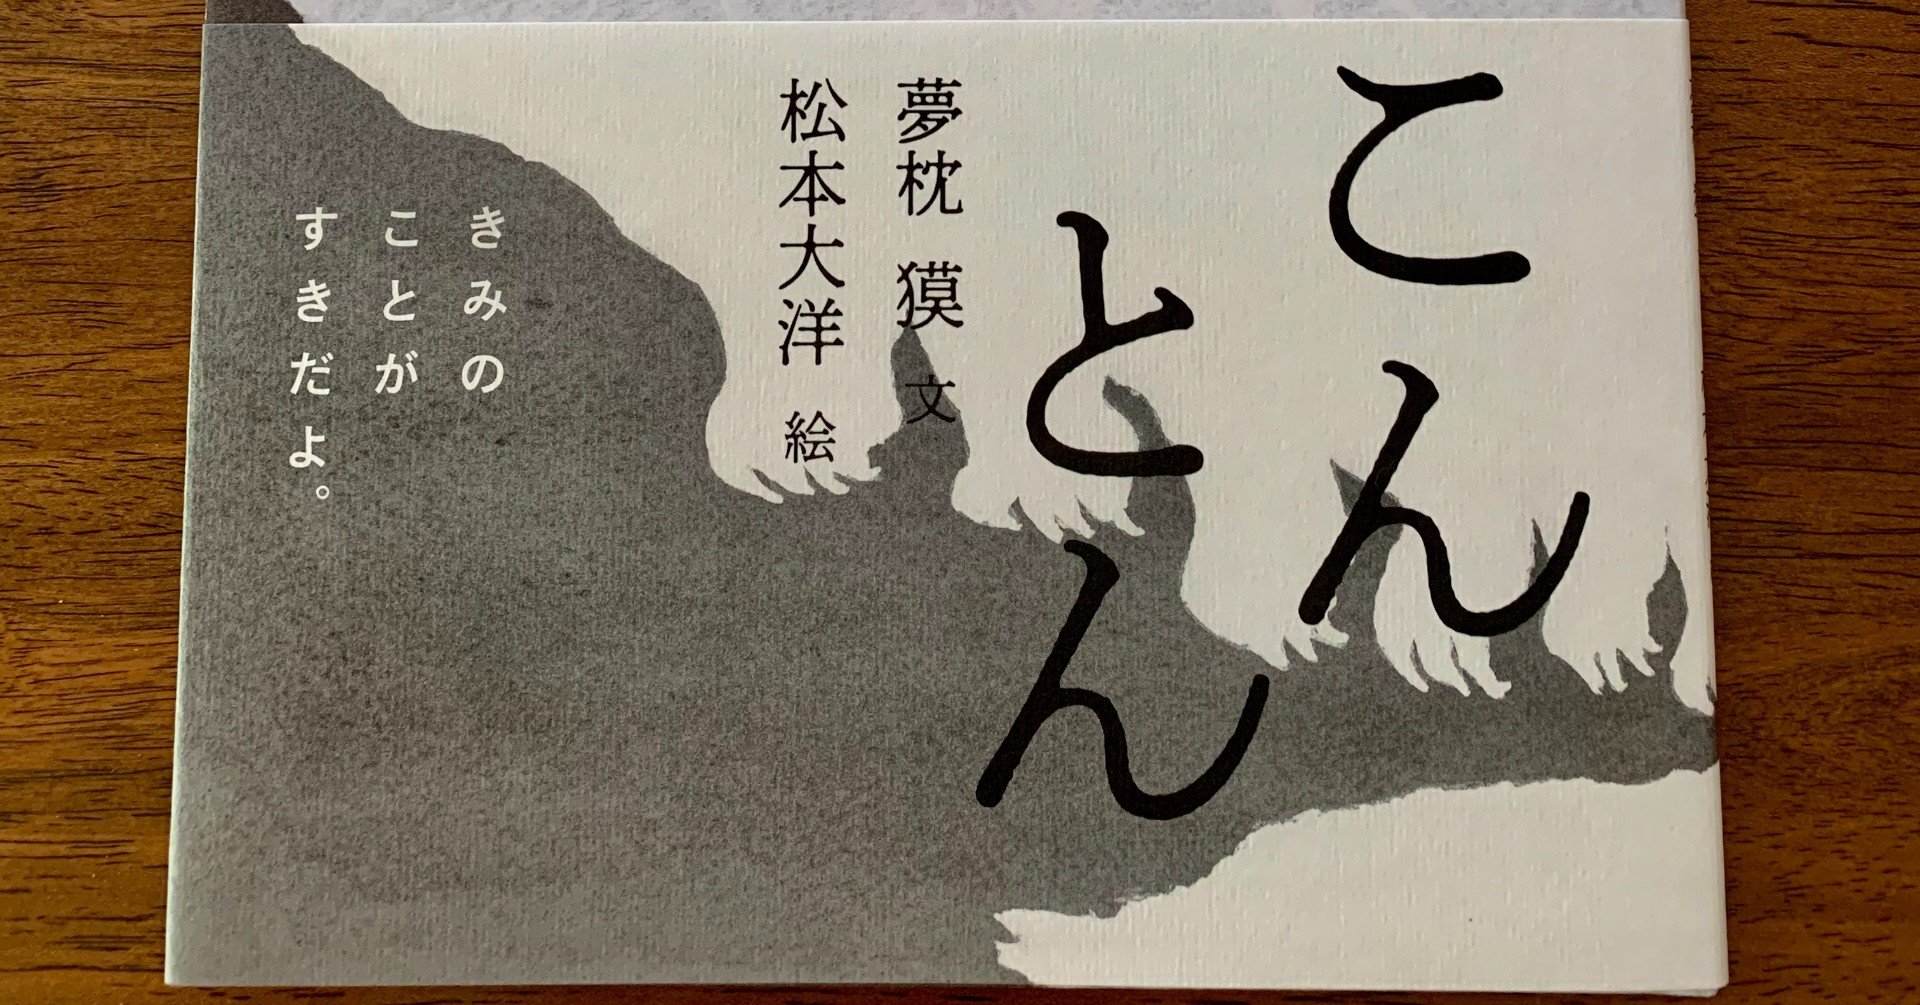 こんとん
夢枕 獏 文
松本大洋 絵
きみの
ことが
すきだよ。